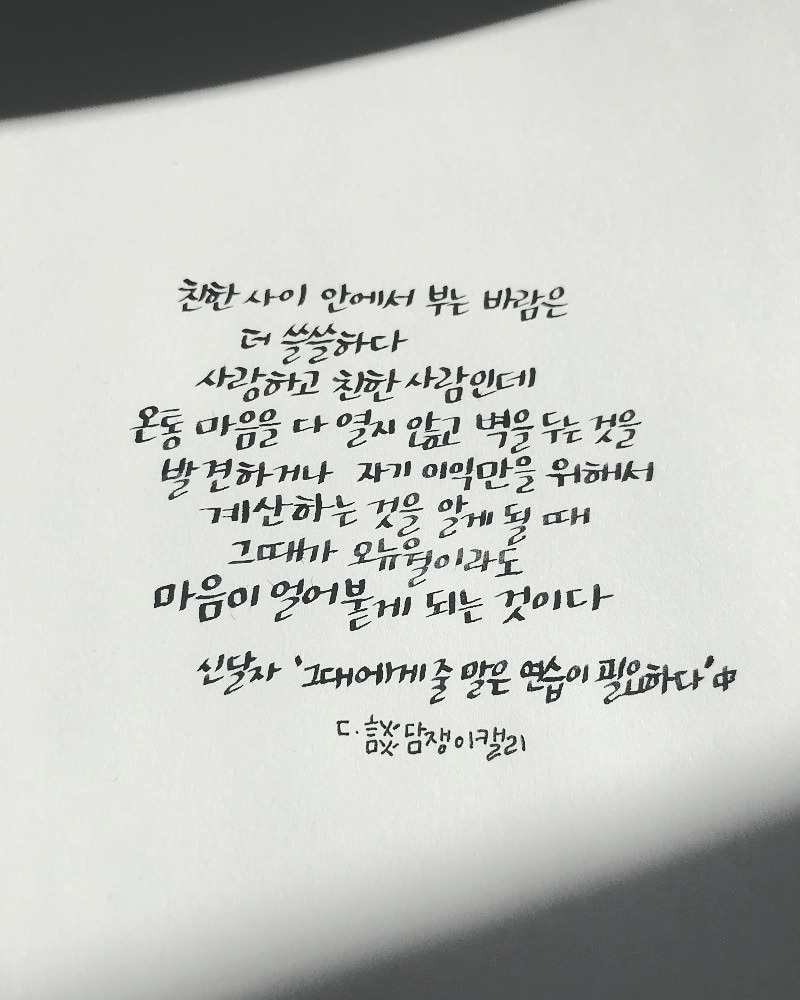 친한 사이 안에서 부는 바람은
더 쓸쓸하다
사랑하고 친한 사람인데
온통 마음을 다 열지 않고 벽을 두는 것을
발견하거나 자기 이익만을 위해서
계산하는 것을 알게 될 때
그때가 오뉴월이라도
마음이 얼어붙게 되는 것이다
신달자 '그대에게 줄 말은 연습이 필요하다' 中
ㄷ.談 담쟁이캘리